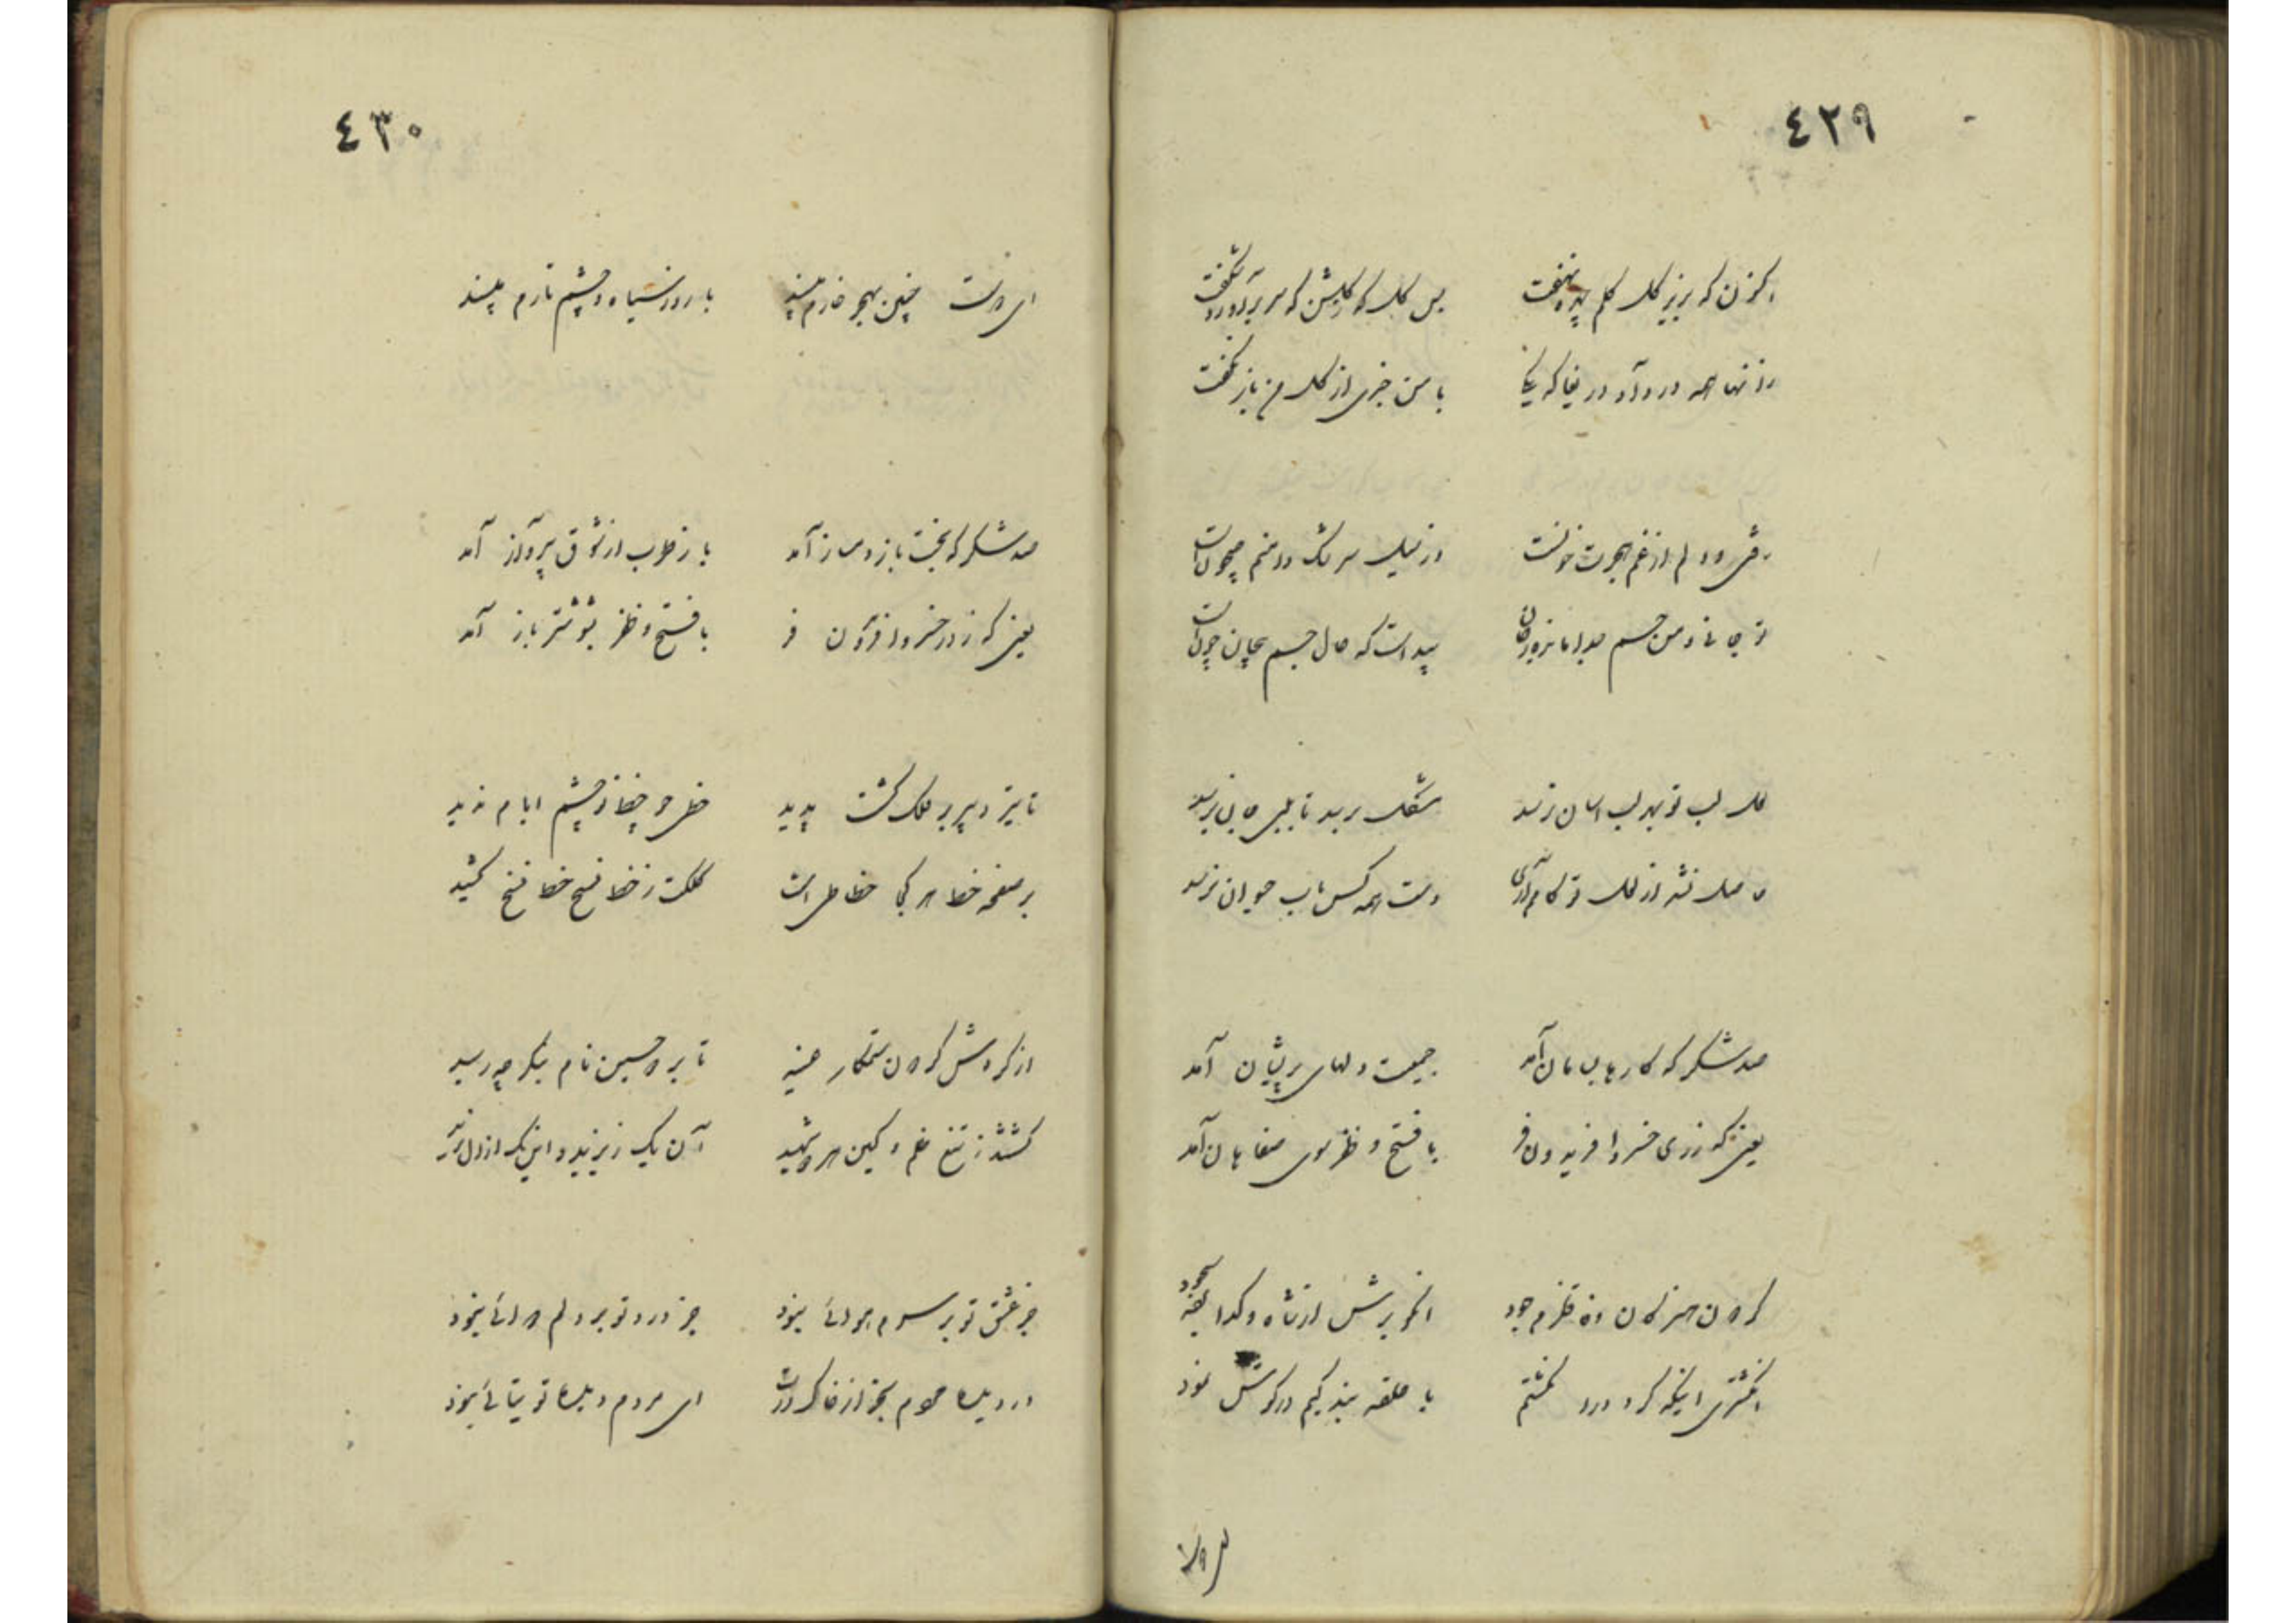 ٤٢٩
اکنون که بزیر کل کلم نهفت
بس کل که ز کلشن که سر برآورد شکفت
زانها همه درد آه دریغا که یکی
با من خبری از کل من باز نکفت
رفتی و دلم از غم هجرت خونست
وز سیل سرشک دامنم جیحونست
تو جانی و من جسم جدا
پیداست که حال جسم بیجان چونست
لعل لب تو بهر لب آسان نرسد
مشکل برسد تا بلبی جانی نرسد
حاصل نشد از لعل تو کام
دست همه کس بآب حیوان نرسد
صد شکر که کارها بسامان آمد
جمعیت دلهای پریشان آمد
یعنی که ز ری خسرو افریدون فر
با فتح و ظفر سوی صفاهان آمد
کردون هنر کان وفا قلزم جود
انکو برش از شاه و کدا سجود
انکشتری اینکه کرد در انکشتم
با حلقه بندکیم در کوش نمود
٤٣٠
ای دوست چنین بهجر خارم مپسند
با روز سیاه و چشم تارم مپسند
صد شکر که بخت باز دمساز آمد
باز طرب از شوق بپرواز آمد
یعنی که ز در خسرو افریدون فر
با فتح و ظفر بشوشتر باز آمد
تا تیر دبیر بر فلک کشت پدید
خطی چو خط تو چشم ایام ندید
بر صفحه خط هر کجا خطاطی است
کلکت ز خط نسخ خط نسخ کشید
از کردش کردون ستمکار عنید
تا بر دو حسین نام بنکر چه رسید
کشتند ز تیغ ظلم و کین هر دو شهید
آن یک ز یزید و این یک از
جز عشق تو بر سرم هوائی نبود
جز درد تو بر دلم دوائی نبود
در دیده مردم بجز از خاک درت
ای مردم دیده توتیائی نبود